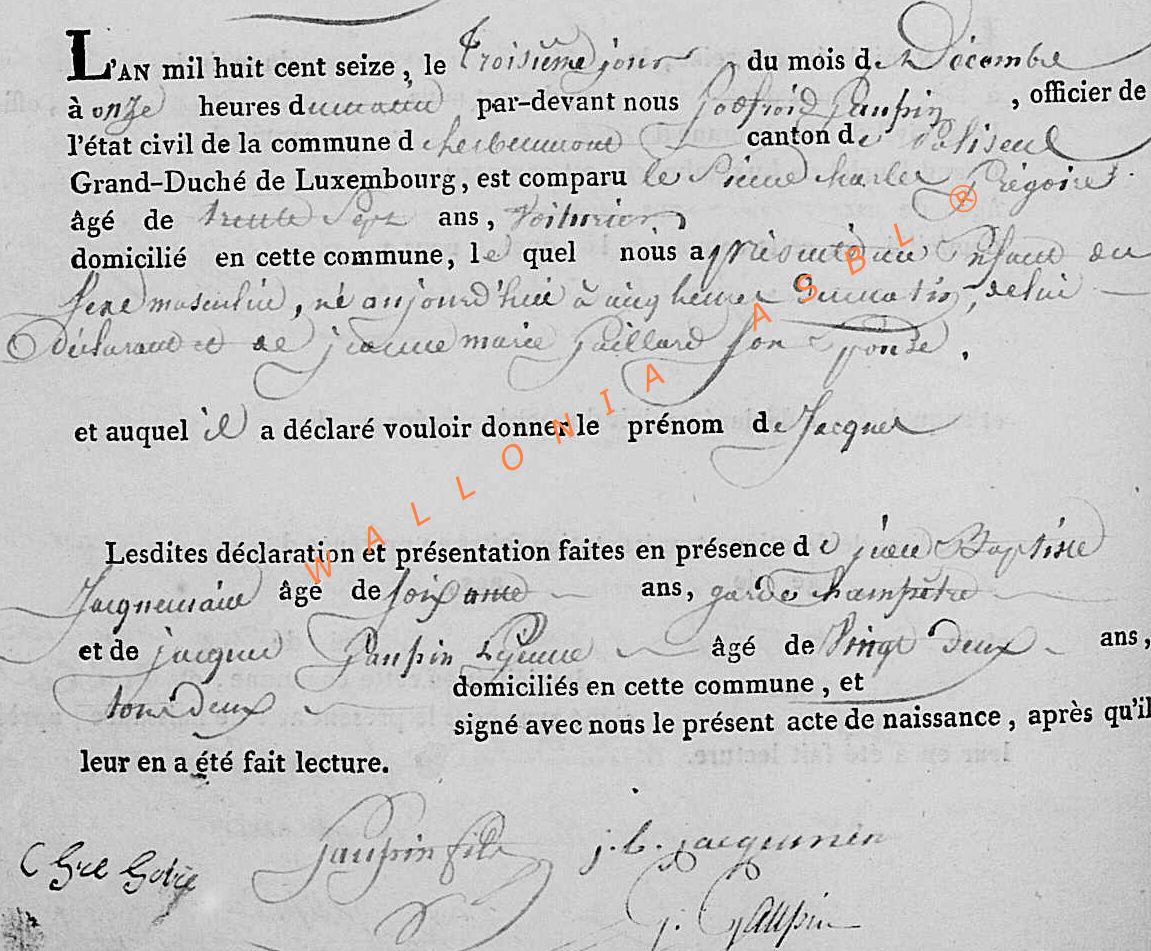 L'AN mil huit cent seize, le troisième jour du mois de Décembre
à onze heures du matin par-devant nous Godfroid Gauspin, officier de
l'état civil de la commune d'herbeumont canton de Paliseul
Grand-Duché de Luxembourg, est comparu le Sieur charles Grégoire
âgé de trente Sept ans, Voiturier
domicilié en cette commune, le quel nous a présenté un Enfant du
sexe masculin, né aujourd'hui à cinq heures du matin, de lui
Déclarant et de jeanne marie gaillard son Epouse,
et auquel il a déclaré vouloir donner le prénom de Jacques
Lesdites déclaration et présentation faites en présence de jean Baptiste
Jacquemain âgé de soixante ans, garde champêtre
et de jacques Gauspin âgé de Vingt deux ans,
tous deux domiciliés en cette commune, et
signé avec nous le présent acte de naissance, après qu'il
leur en a été fait lecture.
gauspin fils j. b. jacquemin
j. Gauspin
WALLONIA ASBL ®